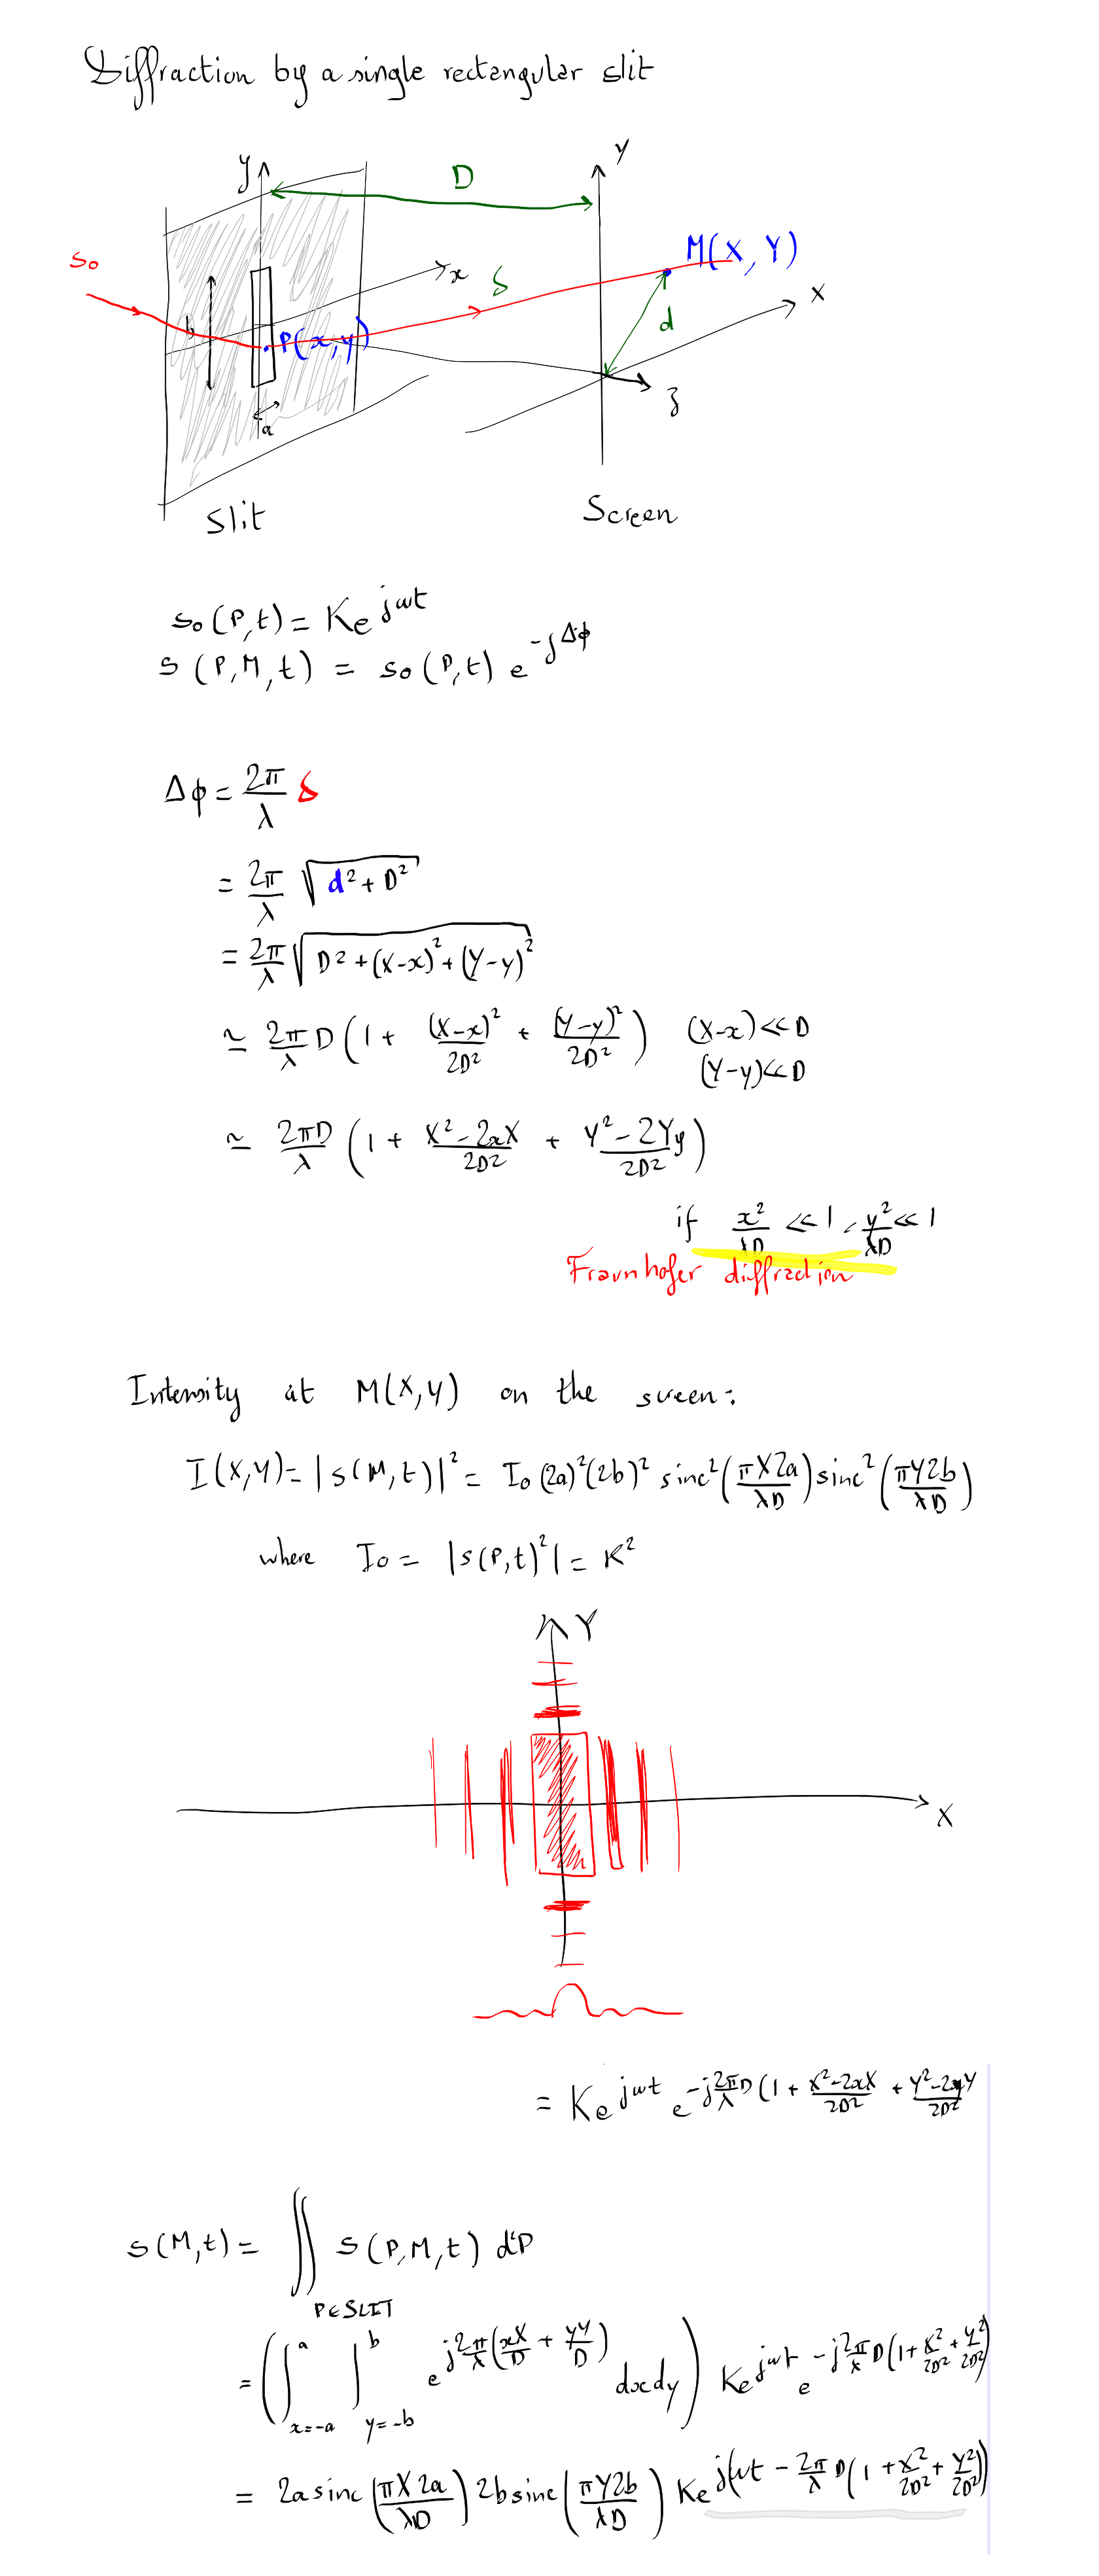 Diffraction by a single rectangular slit
y
D
Y
s₀
x
δ
M(X, Y)
X
b
P(x,y)
d
z
a
Slit
Screen
s₀(P,t) = Ke^{jωt}
s(P,M,t) = s₀(P,t) e^{-jΔφ}
Δφ = 2π/λ δ
= 2π/λ √(d² + D²)
= 2π/λ √(D² + (X-x)² + (Y-y)²)
≃ 2π/λ D (1 + (X-x)²/2D² + (Y-y)²/2D²) (X-x) ≪ D
(Y-y) ≪ D
≃ 2πD/λ (1 + X²-2xX/2D² + Y²-2Yy/2D²)
if x²/λD ≪ 1, y²/λD ≪ 1
Fraunhofer diffraction
Intensity at M(X,Y) on the screen:
I(X,Y) = |s(M,t)|² = I₀ (2a)²(2b)² sinc²(πX2a/λD) sinc²(πY2b/λD)
where I₀ = |s(P,t)²| = K²
Y
X
= Ke^{jωt} e^{-j2π/λ D(1 + X²-2xX/2D² + Y²-2yY/2D²
s(M,t) = ∬ s(P,M,t) d²P
P∈SLIT
= (∫_{x=-a}^{a} ∫_{y=-b}^{b} e^{j2π/λ(xX/D + yY/D)} dxdy) Ke^{jωt} e^{-j2π/λ D(1+X²/2D²+Y²/2D²)}
= 2a sinc(πX2a/λD) 2b sinc(πY2b/λD) Ke^{j(ωt - 2π/λ D(1+X²/2D²+Y²/2D²))}